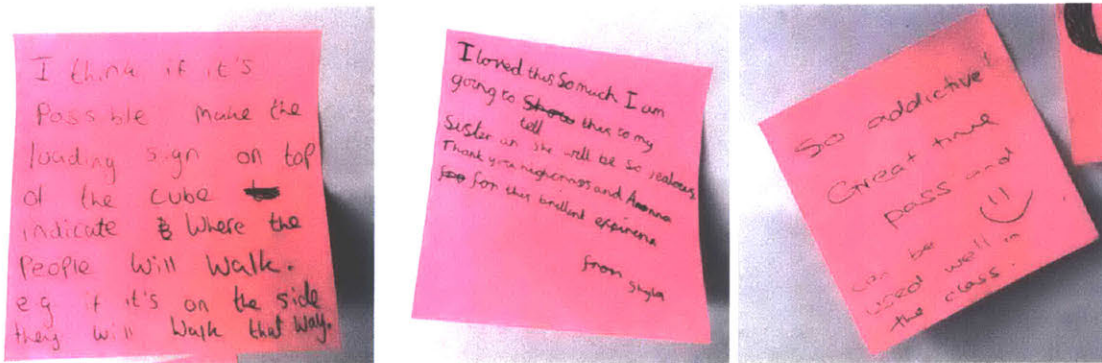 I think if it's
Possible make the
loading sign on top
of the cube
indicate Where the
People Will Walk.
eg if it's on the side
they will Walk that way.
I loved this So much I am
going to tell this to my
Sister an she will be so jealous,
Thank you and
for this brillant
from Shyla
So addictive!
Great time
pass and
can be
used well in
the class.